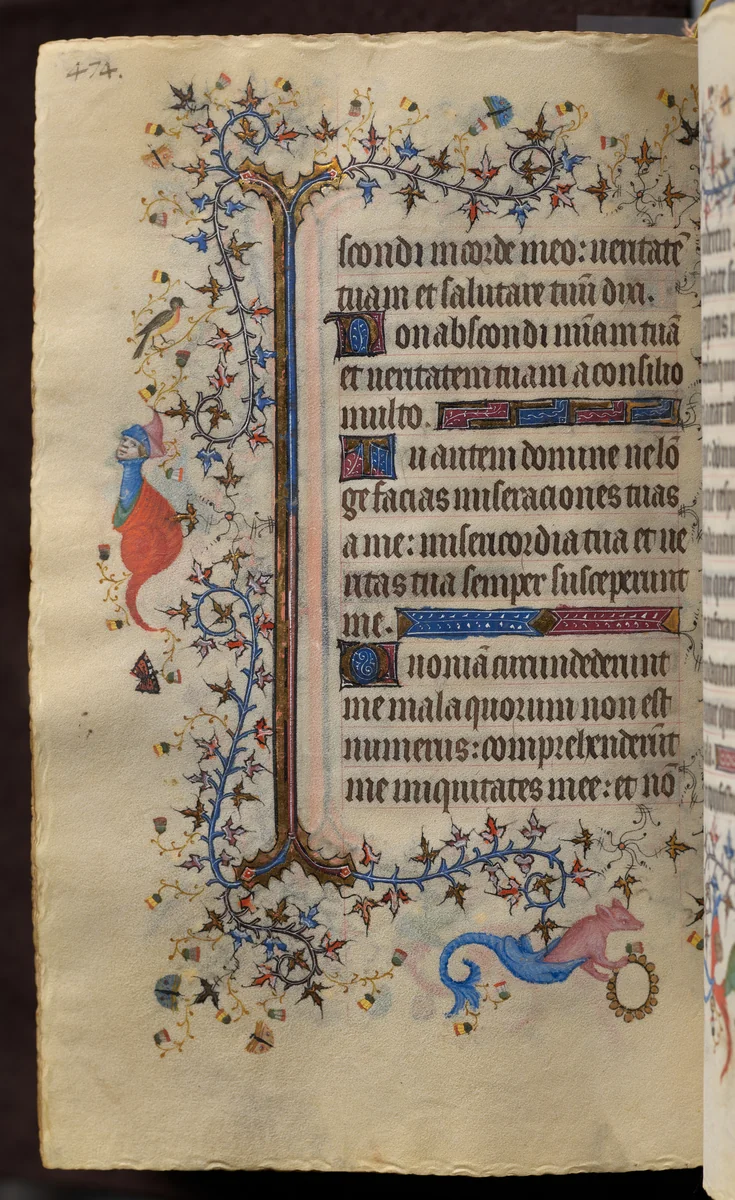 474.
scondi in corde meo: ueritatē
tuam et salutare tuū dixi.
Non abscondi mīam tuā
et ueritatem tuam a consilio
multo.
Tu autem domine ne lō
ge facias miseraciones tuas
a me: misericordia tua et ue
ritas tua semper susceperunt
me.
Quoniā circundederunt
me mala quorum non est
numerus: comprehenderūt
me iniquitates mee: et nō